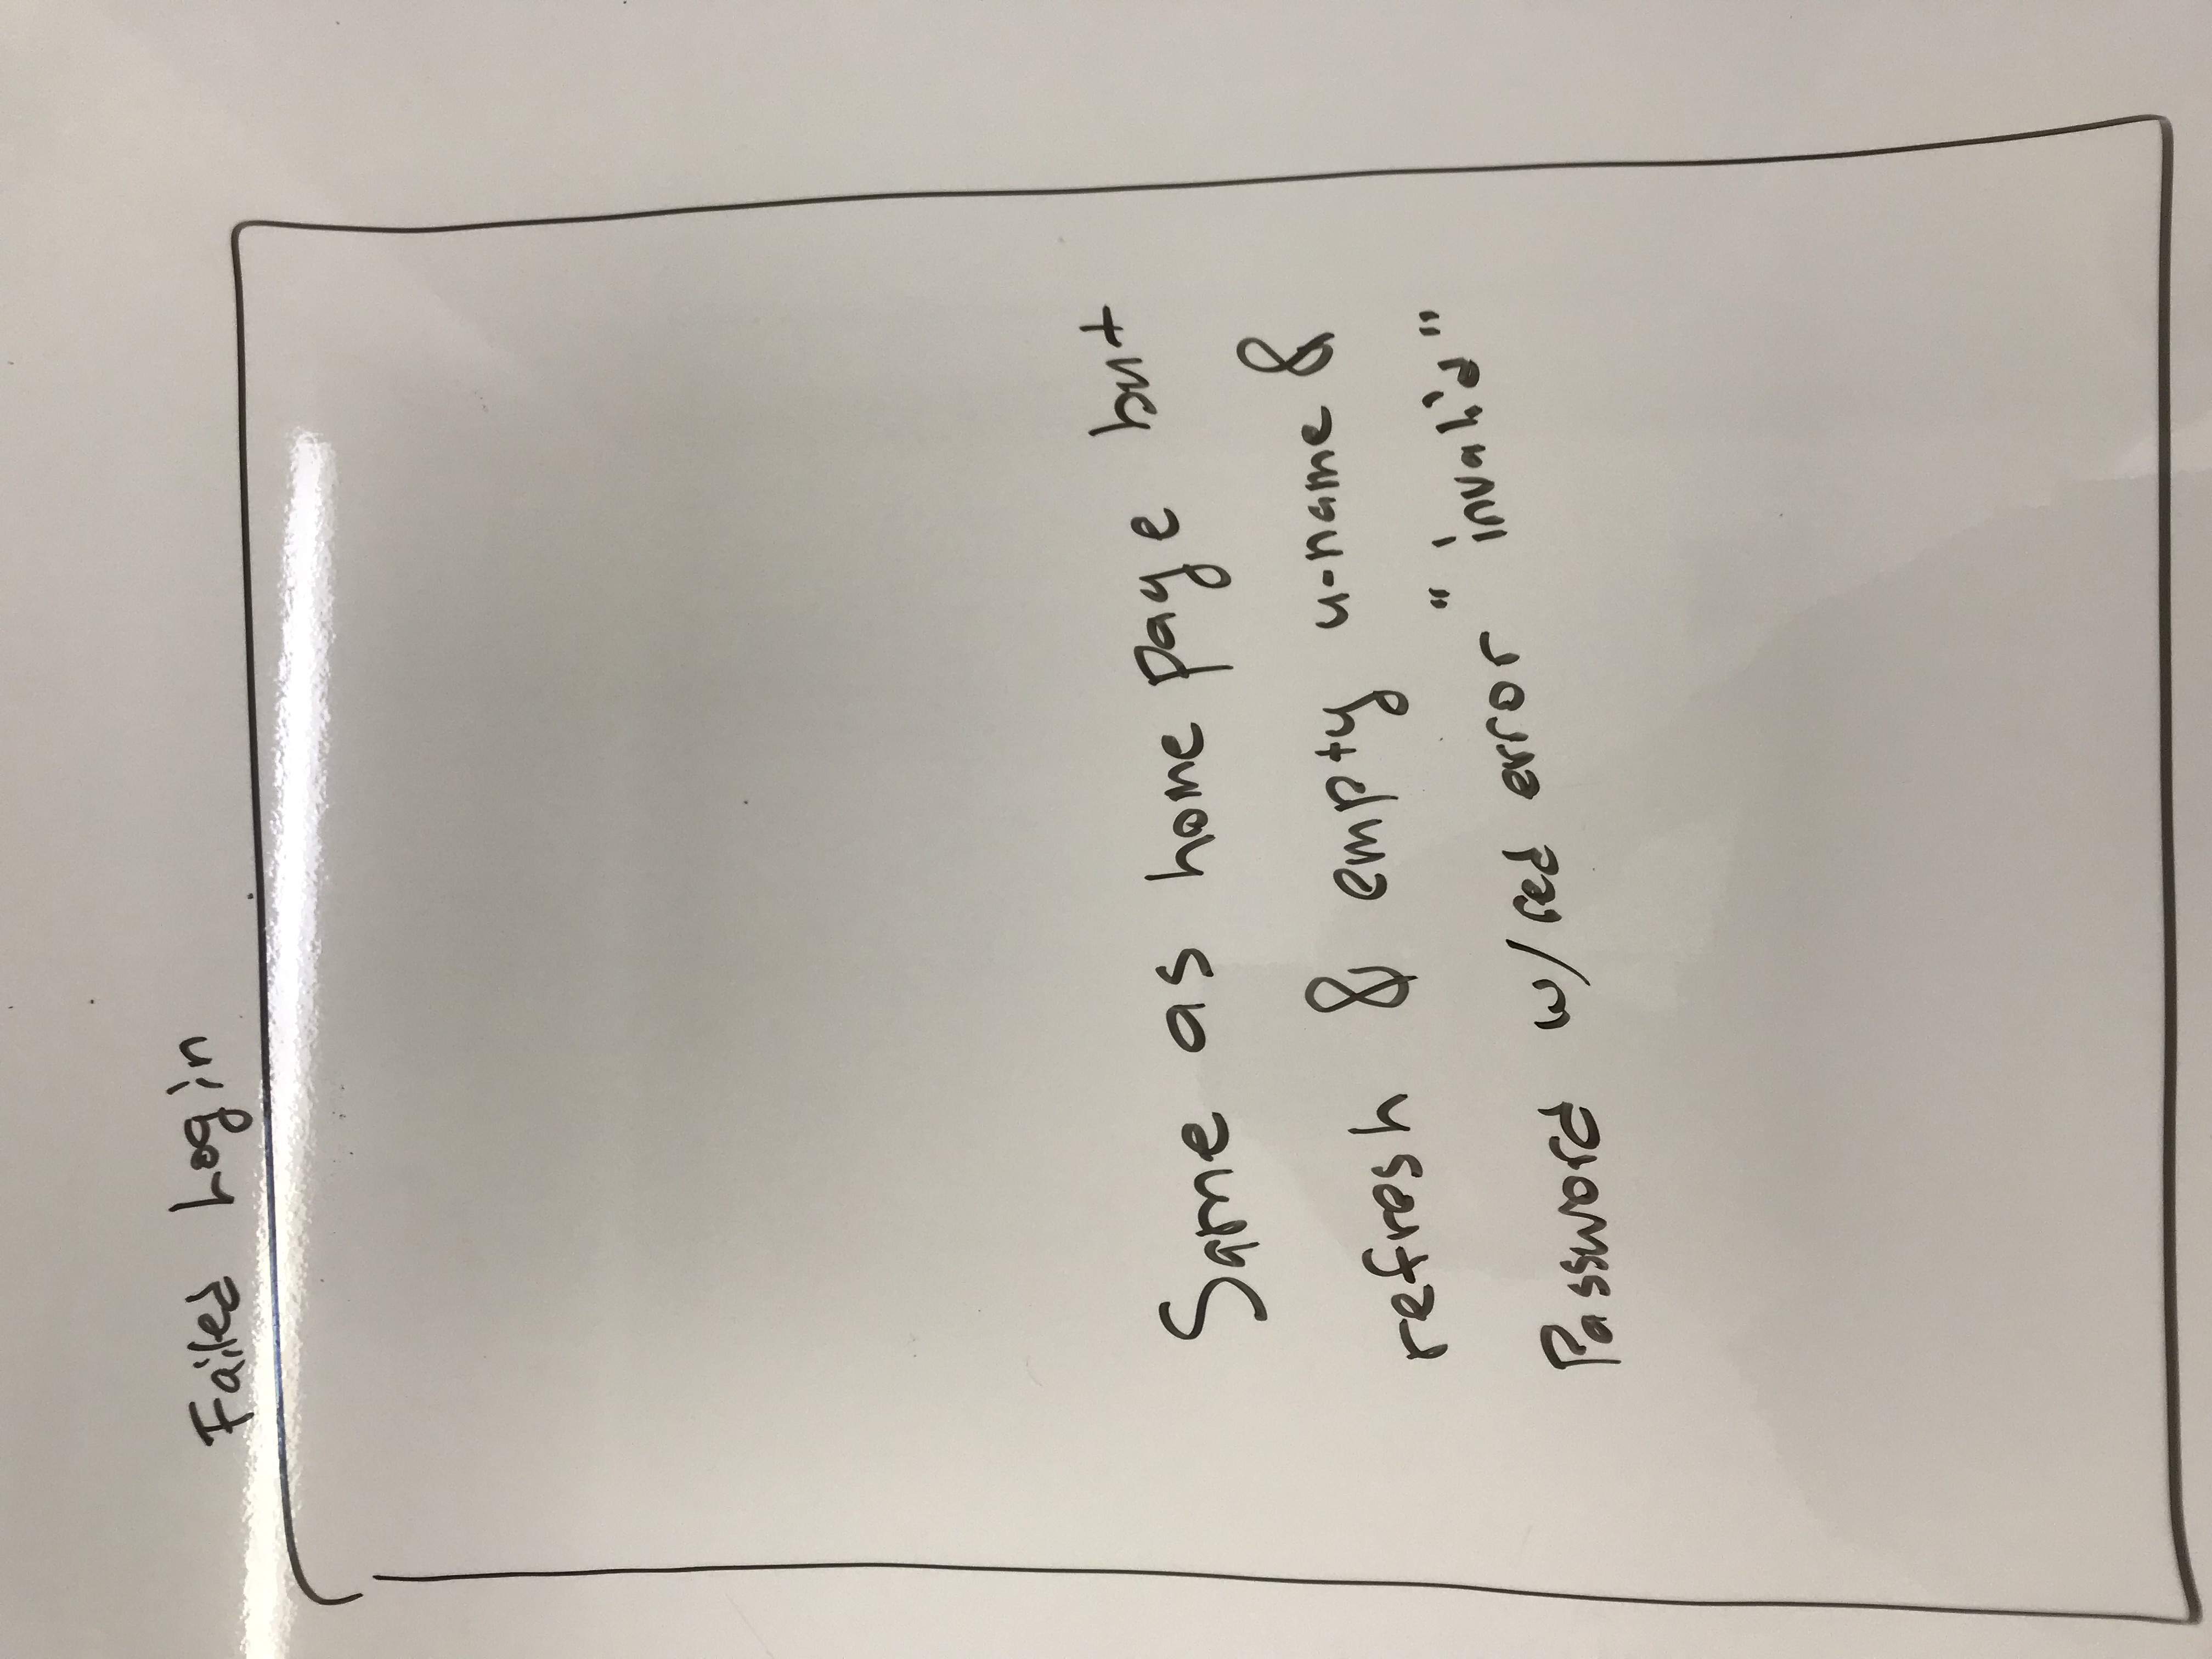 Failed Login
Same as home page but
refresh & empty u-name &
Password w/ red error "invalid"